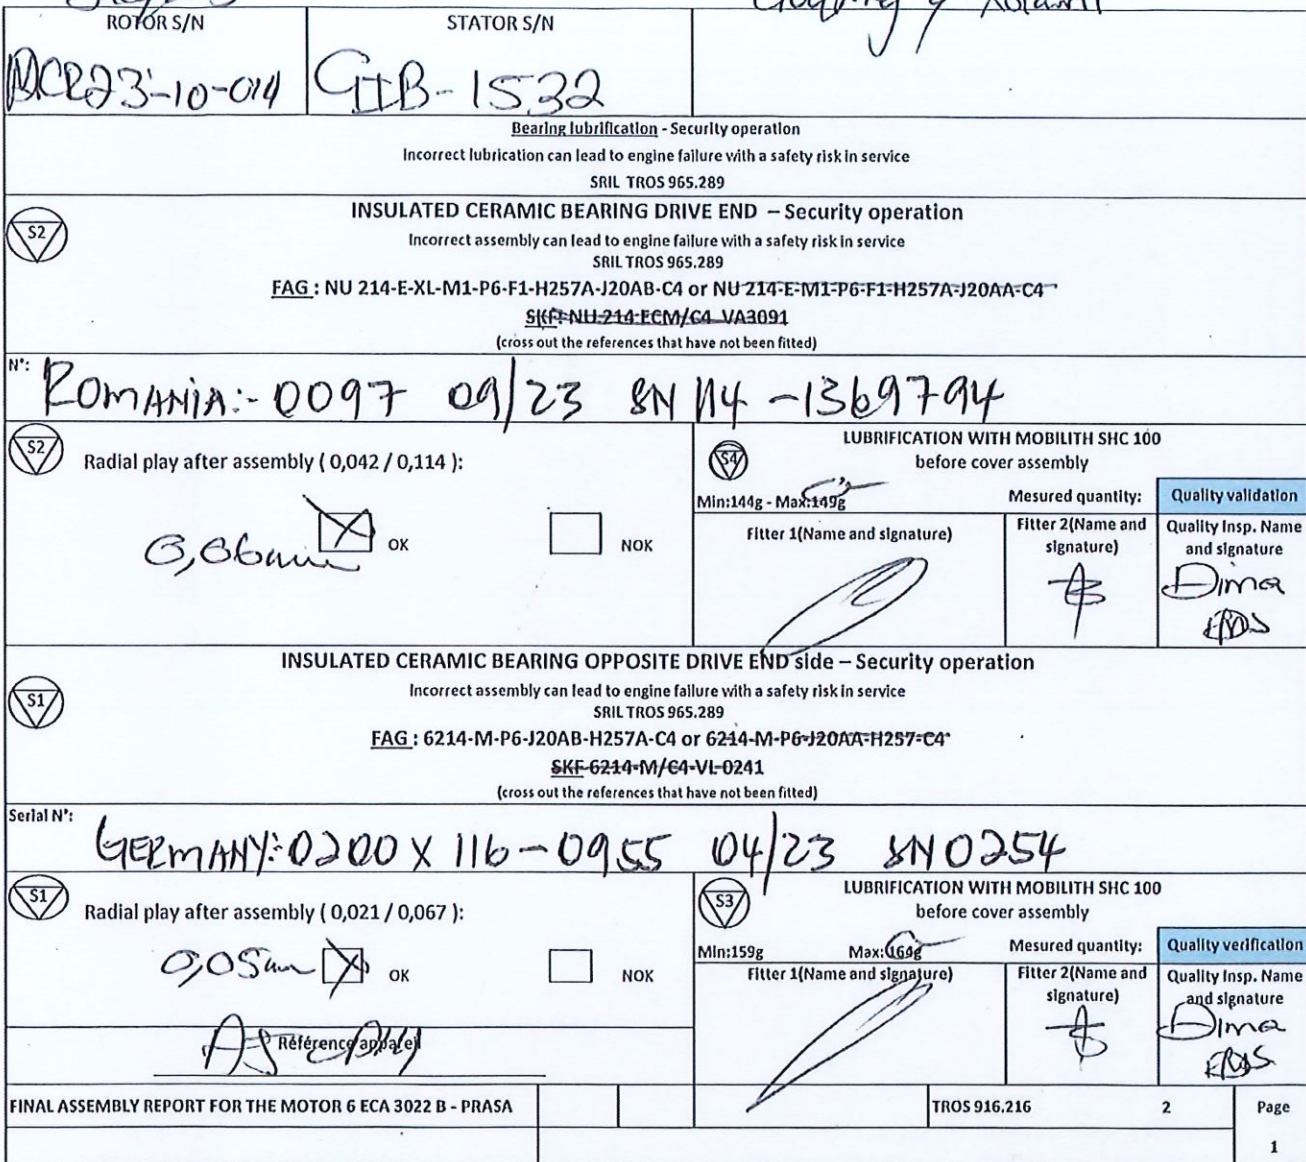 ROTOR S/N
STATOR S/N
MCR23-10-014
GIB-1532
Bearing lubrification - Security operation
Incorrect lubrication can lead to engine failure with a safety risk in service
SRIL TROS 965.289
S2
INSULATED CERAMIC BEARING DRIVE END – Security operation
Incorrect assembly can lead to engine failure with a safety risk in service
SRIL TROS 965.289
FAG : NU 214-E-XL-M1-P6-F1-H257A-J20AB-C4 or NU 214-E-M1-P6-F1-H257A-J20AA-C4
SKF: NU 214 ECM/C4 VA3091
(cross out the references that have not been fitted)
N°:
ROMANIA:- 0097 09/23 SN 114 -1369794
S2
Radial play after assembly ( 0,042 / 0,114 ):
0,06mm
OK
NOK
S4
LUBRIFICATION WITH MOBILITH SHC 100
before cover assembly
Min:144g - Max:149g
Mesured quantity:
Quality validation
Fitter 1(Name and signature)
Fitter 2(Name and signature)
Quality Insp. Name and signature
Dima
INSULATED CERAMIC BEARING OPPOSITE DRIVE END side – Security operation
S1
Incorrect assembly can lead to engine failure with a safety risk in service
SRIL TROS 965.289
FAG : 6214-M-P6-J20AB-H257A-C4 or 6214-M-P6-J20AA-H257-C4
SKF 6214-M/C4-VL-0241
(cross out the references that have not been fitted)
Serial N°:
GERMANY:-0200 X 116-0955 04/23 SN 0254
S1
Radial play after assembly ( 0,021 / 0,067 ):
0,05mm
OK
NOK
Référence appareil
S3
LUBRIFICATION WITH MOBILITH SHC 100
before cover assembly
Min:159g Max:164g
Mesured quantity:
Quality verification
Fitter 1(Name and signature)
Fitter 2(Name and signature)
Quality Insp. Name and signature
Dima
FINAL ASSEMBLY REPORT FOR THE MOTOR 6 ECA 3022 B - PRASA
TROS 916.216
2
Page
1